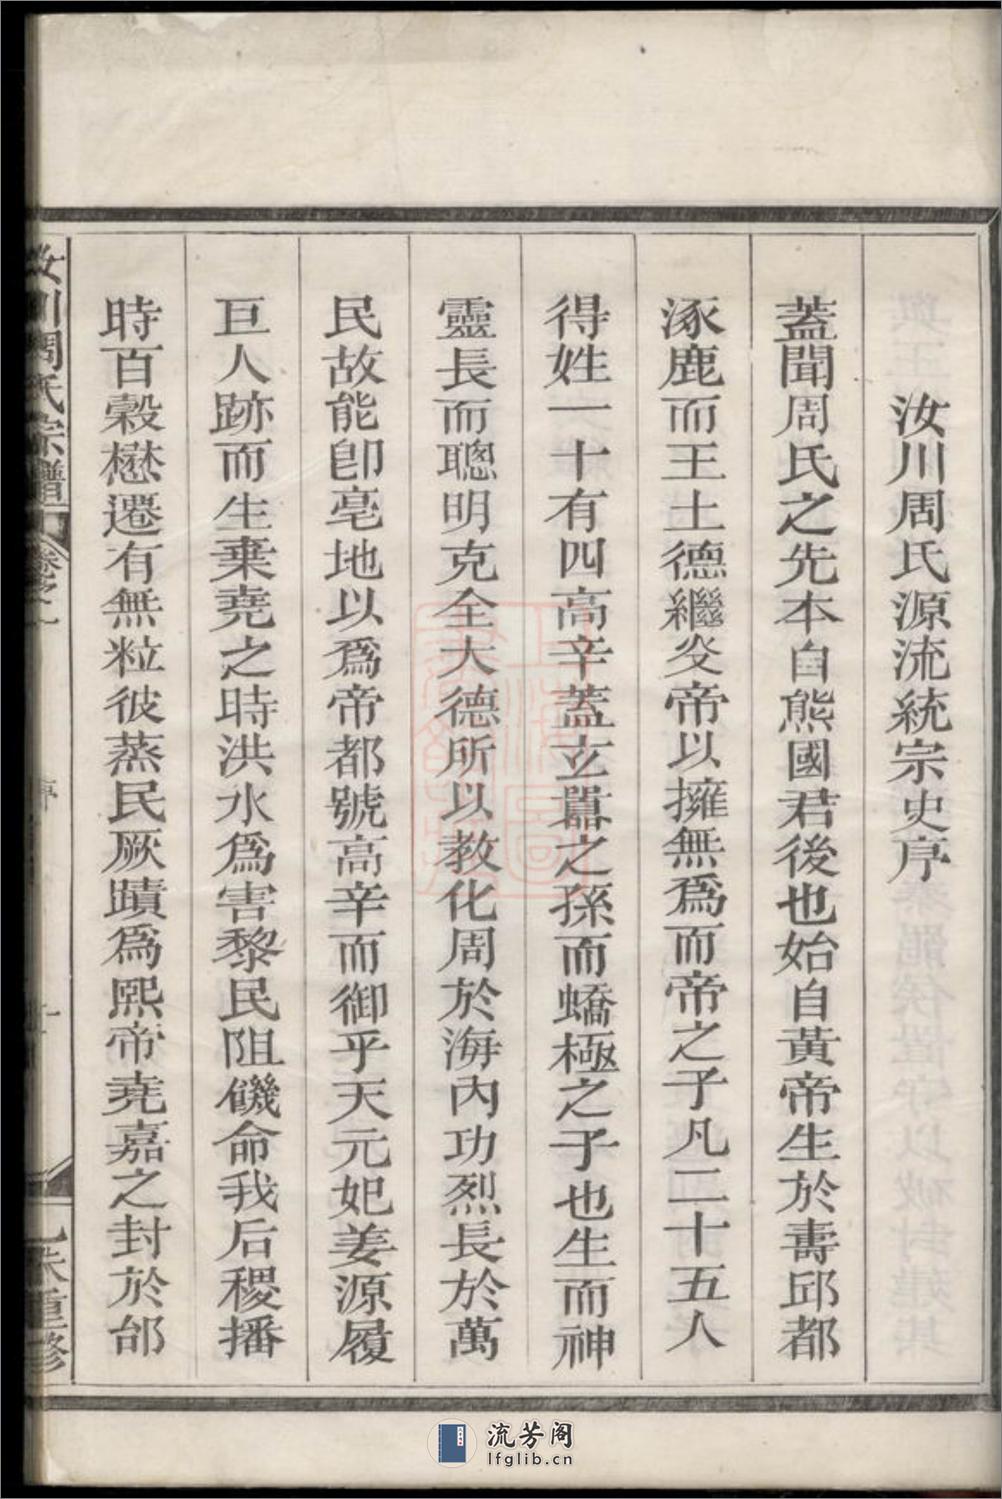 汝川周氏源流統宗史序
蓋聞周氏之先本自熊國君後也始自黃帝生於壽邱都
涿鹿而王土德繼炎帝以擁無爲而帝之子凡二十五人
得姓一十有四高辛蓋玄囂之孫而蟜極之子也生而神
靈長而聰明克全大德所以教化周於海內功烈長於萬
民故能卽亳地以爲帝都號高辛而御乎天元妃姜源履
巨人跡而生棄堯之時洪水爲害黎民阻饑命我后稷播
時百穀懋遷有無粒彼蒸民厥蹟爲熙帝堯嘉之封於邰
汝川周氏宗譜
卷之一
序
乙未重修
流芳阁
lfglib.cn